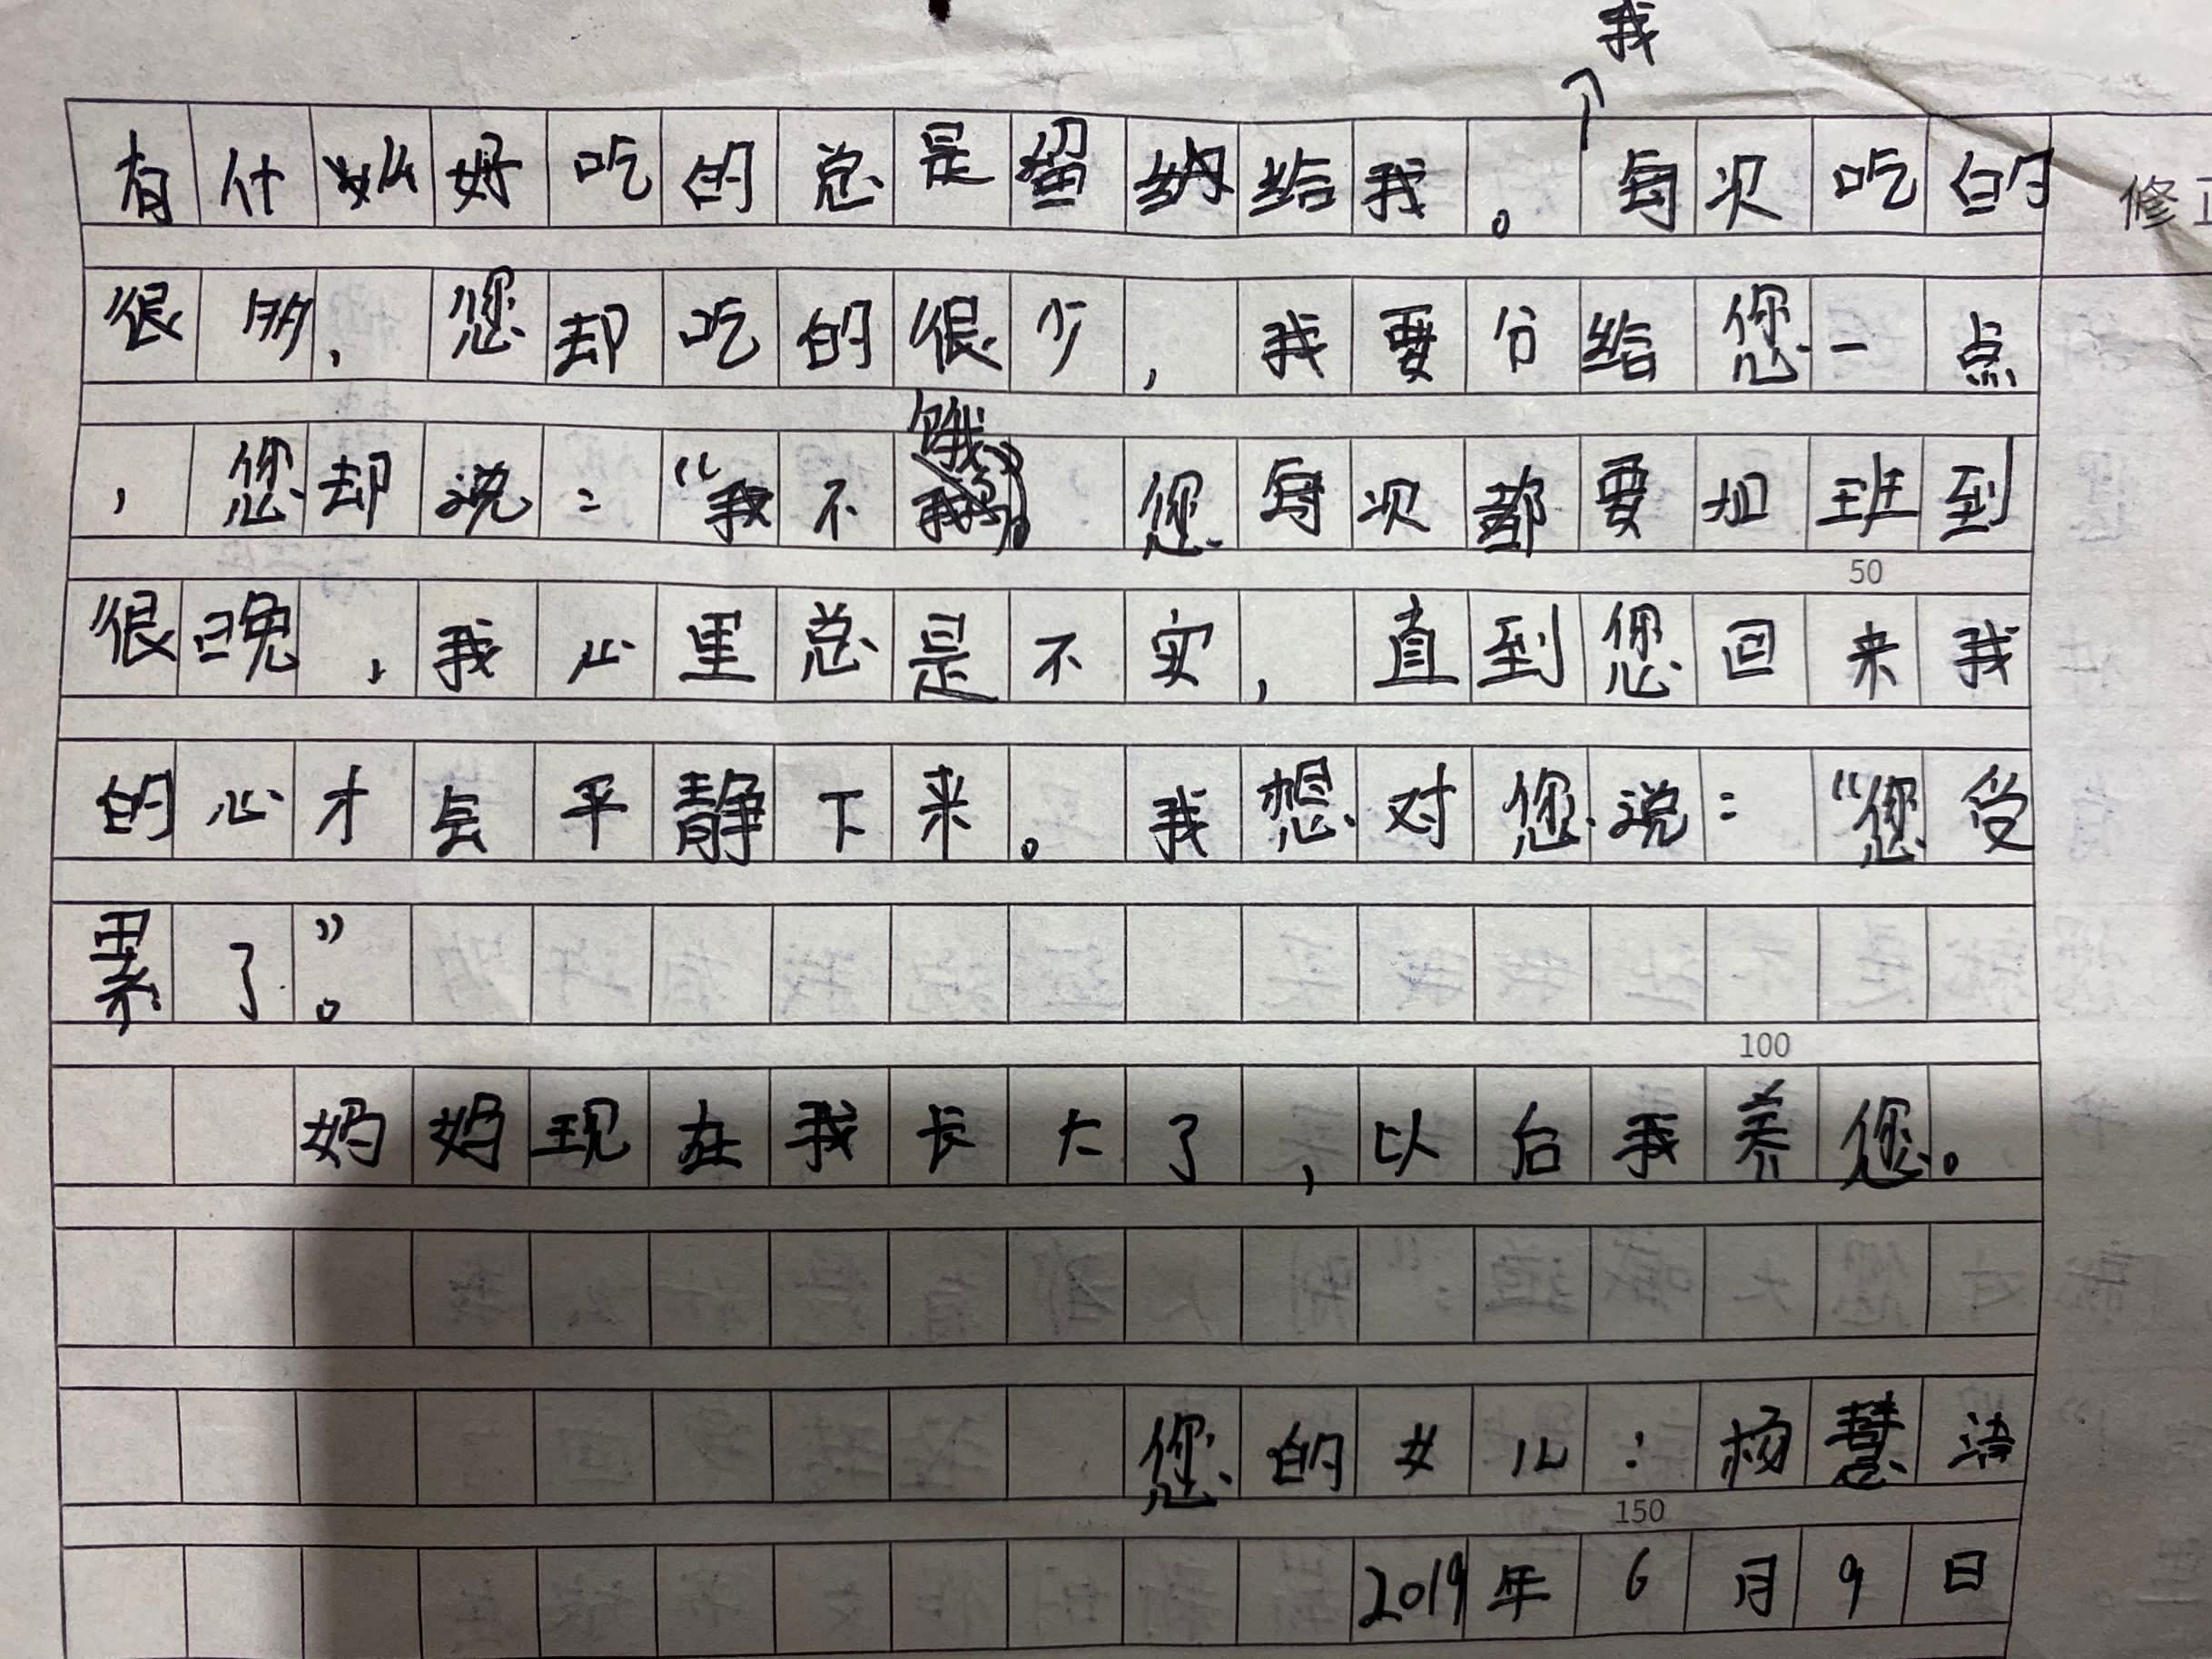 我
有什始好吃的总是留纳给我。每次吃的
修正
很多，您却吃的很少，我要分给您一点
饿
，您却说："我不。"您每次都要加班到
50
很晚，我心里总是不实，直到您回来我
的心才会平静下来。我想对您说："您受
累了"。
100
妈妈现在我长大了，以后我养您。
您的女儿：杨慧洁
150
2019年6月9日